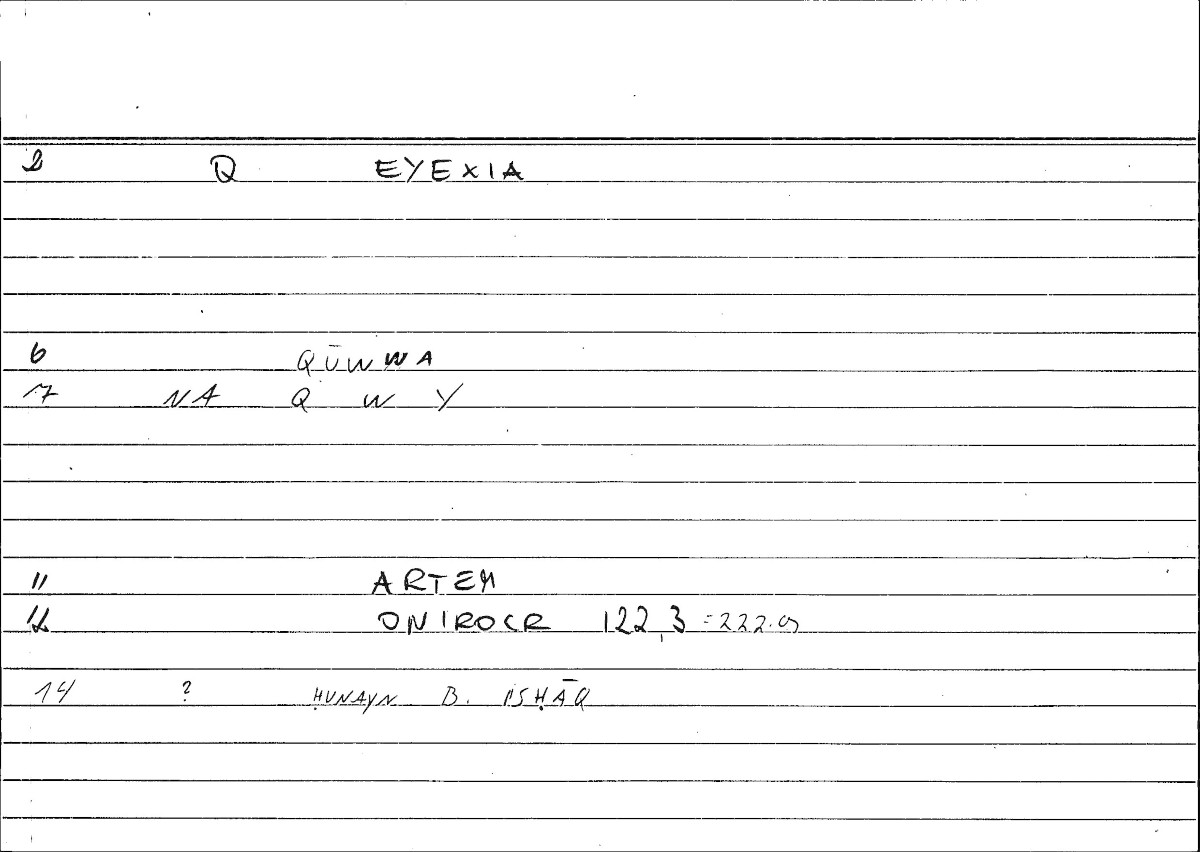 2 Q EYEXIA
6 QŪWWA
7 NA Q W Y
11 ARTEM
12 ONIROCR 122,3 = 222.9
14 ? ḤUNAYN B. ISḤĀQ